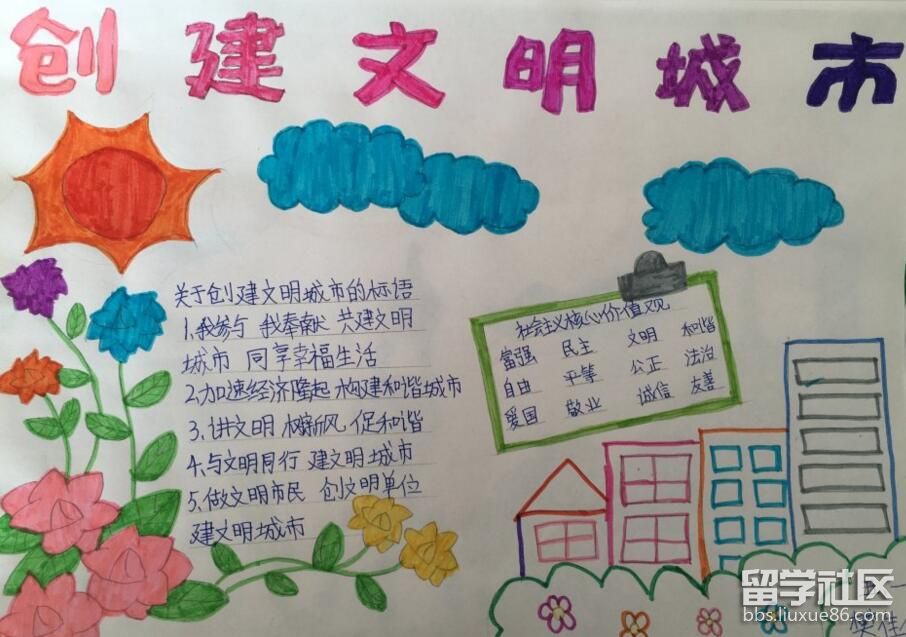 创建文明城市
关于创建文明城市的标语
1、我参与 我奉献 共建文明
城市 同享幸福生活
2、加速经济隆起 构建和谐城市
3、讲文明 树新风 促和谐
4、与文明同行 建文明城市
5、做文明市民 创文明单位
建文明城市
社会主义核心价值观
富强 民主 文明 和谐
自由 平等 公正 法治
爱国 敬业 诚信 友善
留学社区
bbs.liuxue86.com